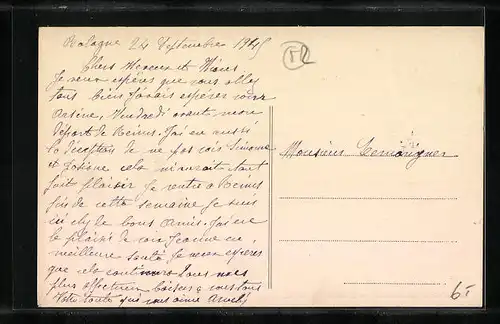 Bologne 24 Septembre 1915
Chers Mercier et Mimi
Je veux espérer que vous allez
tous bien J'avais espérer voir
Arsène, Vendredi avant mon
départ de Reims. J'ai eu aussi
la déception de ne pas voir Simone
et Josiane cela m'aurait tant
fait plaisir Je rentre à Reims
fin de cette semaine Je suis
ici chez le bons Amis. J'ai eu
le plaisir de voir Jeanne en
meilleure santé Je veux espérer
que cela continuera Tous nos
plus affectueux baisers à vous tous
Votre tante qui vous aime
Monsieur
TR
6,-